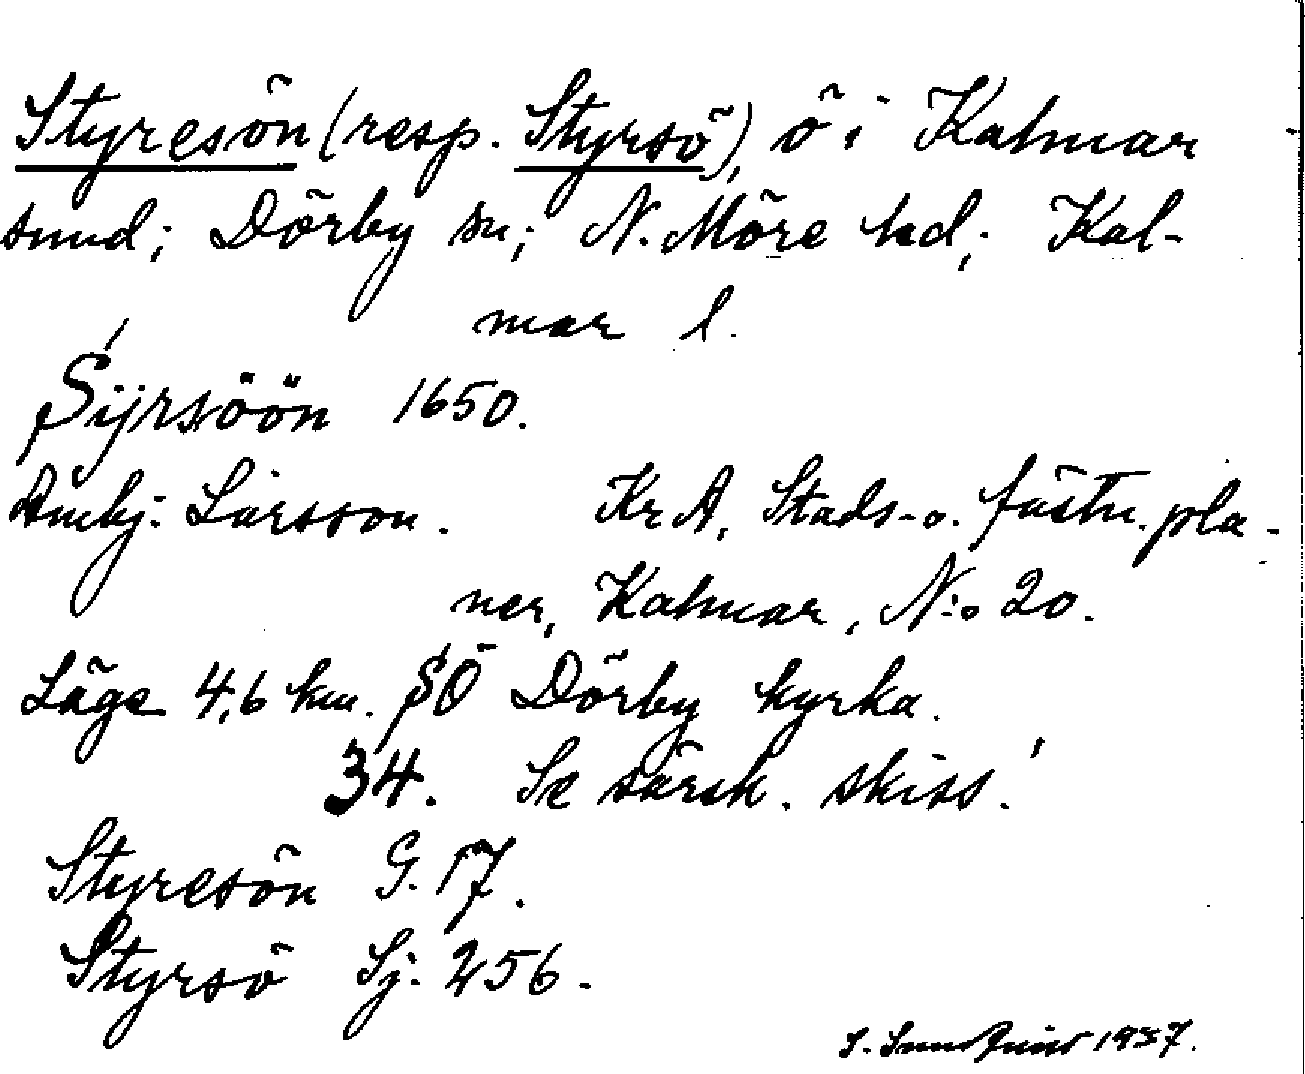 Styresön (resp. Styrsö), ö i Kalmar
sund; Dörby sn; N. Möre hd; Kal-
mar l.
Sijrsöön 1650.
Ambj: Larsson. KrA, Stads- o. fästn. pla-
ner, Kalmar, N:o 20.
Läge 4,6 km. SÖ Dörby kyrka.
34. Se särsk. skiss!
Styresön G. 17.
Styrsö Sj: 256.
1937.